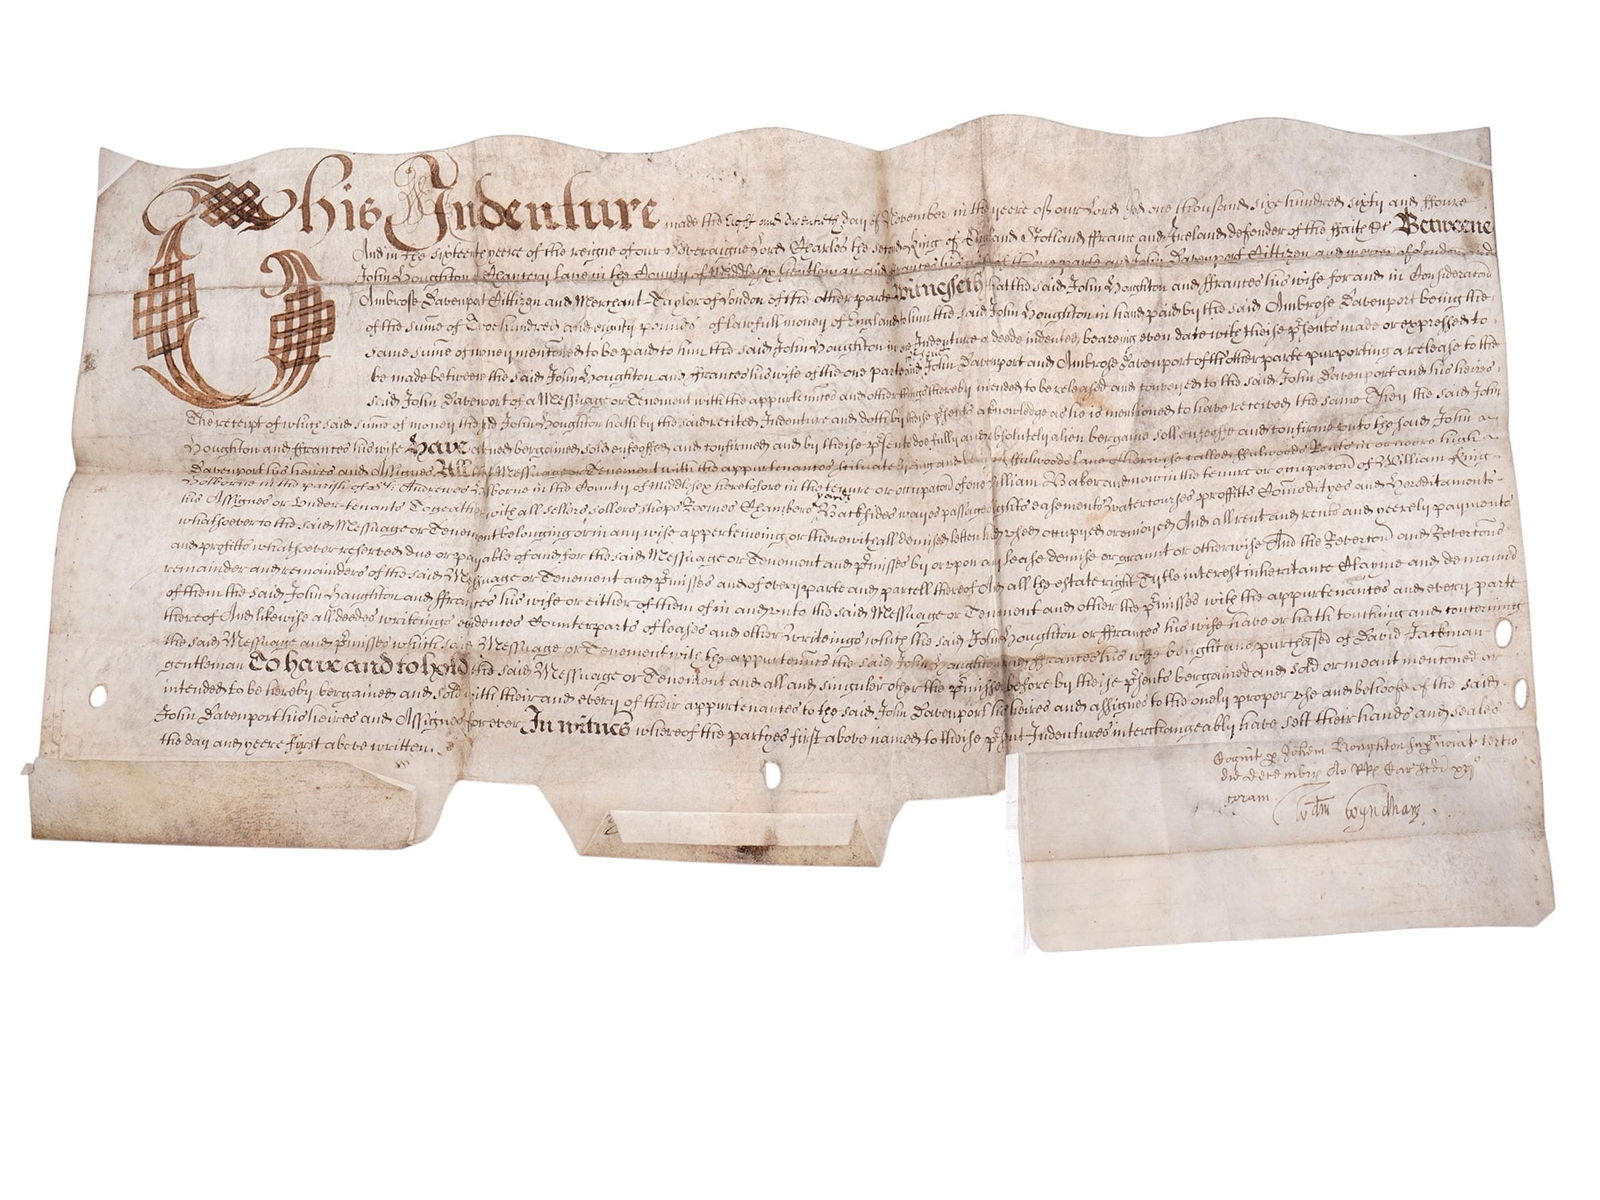 This Indenture made the Eight and twentieth day of November in the yeere of our Lord God one thousand six hundred sixty and ffoure
And in the sixteenth yeere of the reigne of our Soveraigne Lord Charles the second King of England Scotland ffrance and Ireland defender of the ffaith &c Betweene
John Houghton of Chancery lane in the County of Middlesex Gentleman and ffrances his wife of the one parte and John Davenport Cittizen and mercer of London and
Ambrose Davenport Cittizen and Merchant-Taylor of London of the other parte Witnesseth that the said John Houghton and ffrances his wife for and in Consideracon
of the sume of Two hundred and eighty pounds of lawfull money of England to him the said John Houghton in hand paid by the said Ambrose Davenport being the
same sume of money mentoned to be paid to him the said John Houghton in an Indenture or deede indented beareing even date with theise p'sents made or expressed to
be made betweene the said John Houghton and ffrances his wife of the one parte and the said John Davenport and Ambrose Davenport of the other parte purporting a release to the
said John Davenport of a Messuage or Tenement with the appurtennces and other things thereby intended to be released and conveyed to the said John Davenport and his heires
The receipt of which said sume of money the said John Houghton hath by the said recited Indenture and doth by theise p'sents acknowledge as he is mentioned to have received the same They the said John
Houghton and ffrances his wife Have aliened bergained sold enfeoffed and confirmed and by theise p'sents doe fully and absolutely alien bergaine sell enfeoffe and confirme unto the said John
Davenport his heires and Assignes All that Messuage or Tenement with the appurtenances scituate lying and being in ffulwoods lane otherwise called ffulwoods Rents in or neere high
Holborne in the parish of St. Andrewes Holborne in the County of Middlesex heretofore in the tenure or occupacon of one William Baker and now in the tenure or occupacon of William King
his Assignes or Under-tenants Togeather with all sellers sollers shops Roomes Chambers yards Backsides wayes passages lights easements watercourses proffitts Comodityes and Hereditaments
whatsoever to the said Messuage or Tenement belonging or in any wise apperteineing or therewithall demised letten used occupied or enioyed And all rent and rents and yeerely payments
and profitts whatsoever reserved due or payable of and for the said Messuage or Tenement and p'misses by or upon any lease demise or graunt or otherwise And the Revercon and Revercons
remainder and remainders of the said Messuage or Tenement and p'misses and of every parte and parcell thereof And all the estate right Tytle interest inheritance Clayme and demaund
of them the said John Houghton and ffrances his wife or either of them of in and unto the said Messuage or Tenement and other the p'misses with the appurtenances and every parte
thereof And likewise all deedes writeings evidences Counterparts of leases and other Writeings which the said John Houghton or ffrances his wife have or hath touching and concerning
the said Messuage and p'misses which said Messuage or Tenement with the appurtenances the said John Houghton and ffrances his wife bought and purchased of David Jackman
gentleman To have and to hold the said Messuage or Tenement and all and singuler other the p'misses before by theise p'sents bergained and sold or meant mentoned or
intended to be hereby bergained and sold with their and every of their appurtenances to the said John Davenport his heires and assignes to the onely proper use and behoofe of the said
John Davenport his heires and Assignes forever In witnes whereof the partyes first above named to theise p'sent Indentures interchangeably have sett their hands and seales
the day and yeere first above written.
Cognit p Johem Houghton tertio
die Decembris Ao RRs Car scdi xvi
coram Wdm Wyndham